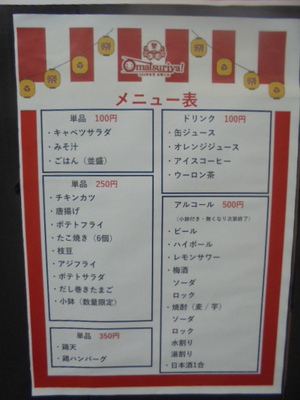 祭
祭
Omatsuriya!
メニュー表
単品 100円
・キャベツサラダ
・みそ汁
・ごはん（並盛）
単品 250円
・チキンカツ
・唐揚げ
・ポテトフライ
・たこ焼き（6個）
・枝豆
・アジフライ
・ポテトサラダ
・だし巻きたまご
・小鉢（数量限定）
単品 350円
・鶏天
・鶏ハンバーグ
ドリンク 100円
・缶ジュース
・オレンジジュース
・アイスコーヒー
・ウーロン茶
アルコール 500円
（小鉢付き・無くなり次第終了）
・ビール
・ハイボール
・レモンサワー
・梅酒
ソーダ
ロック
・焼酎（麦 / 芋）
ソーダ
ロック
水割り
湯割り
・日本酒1合